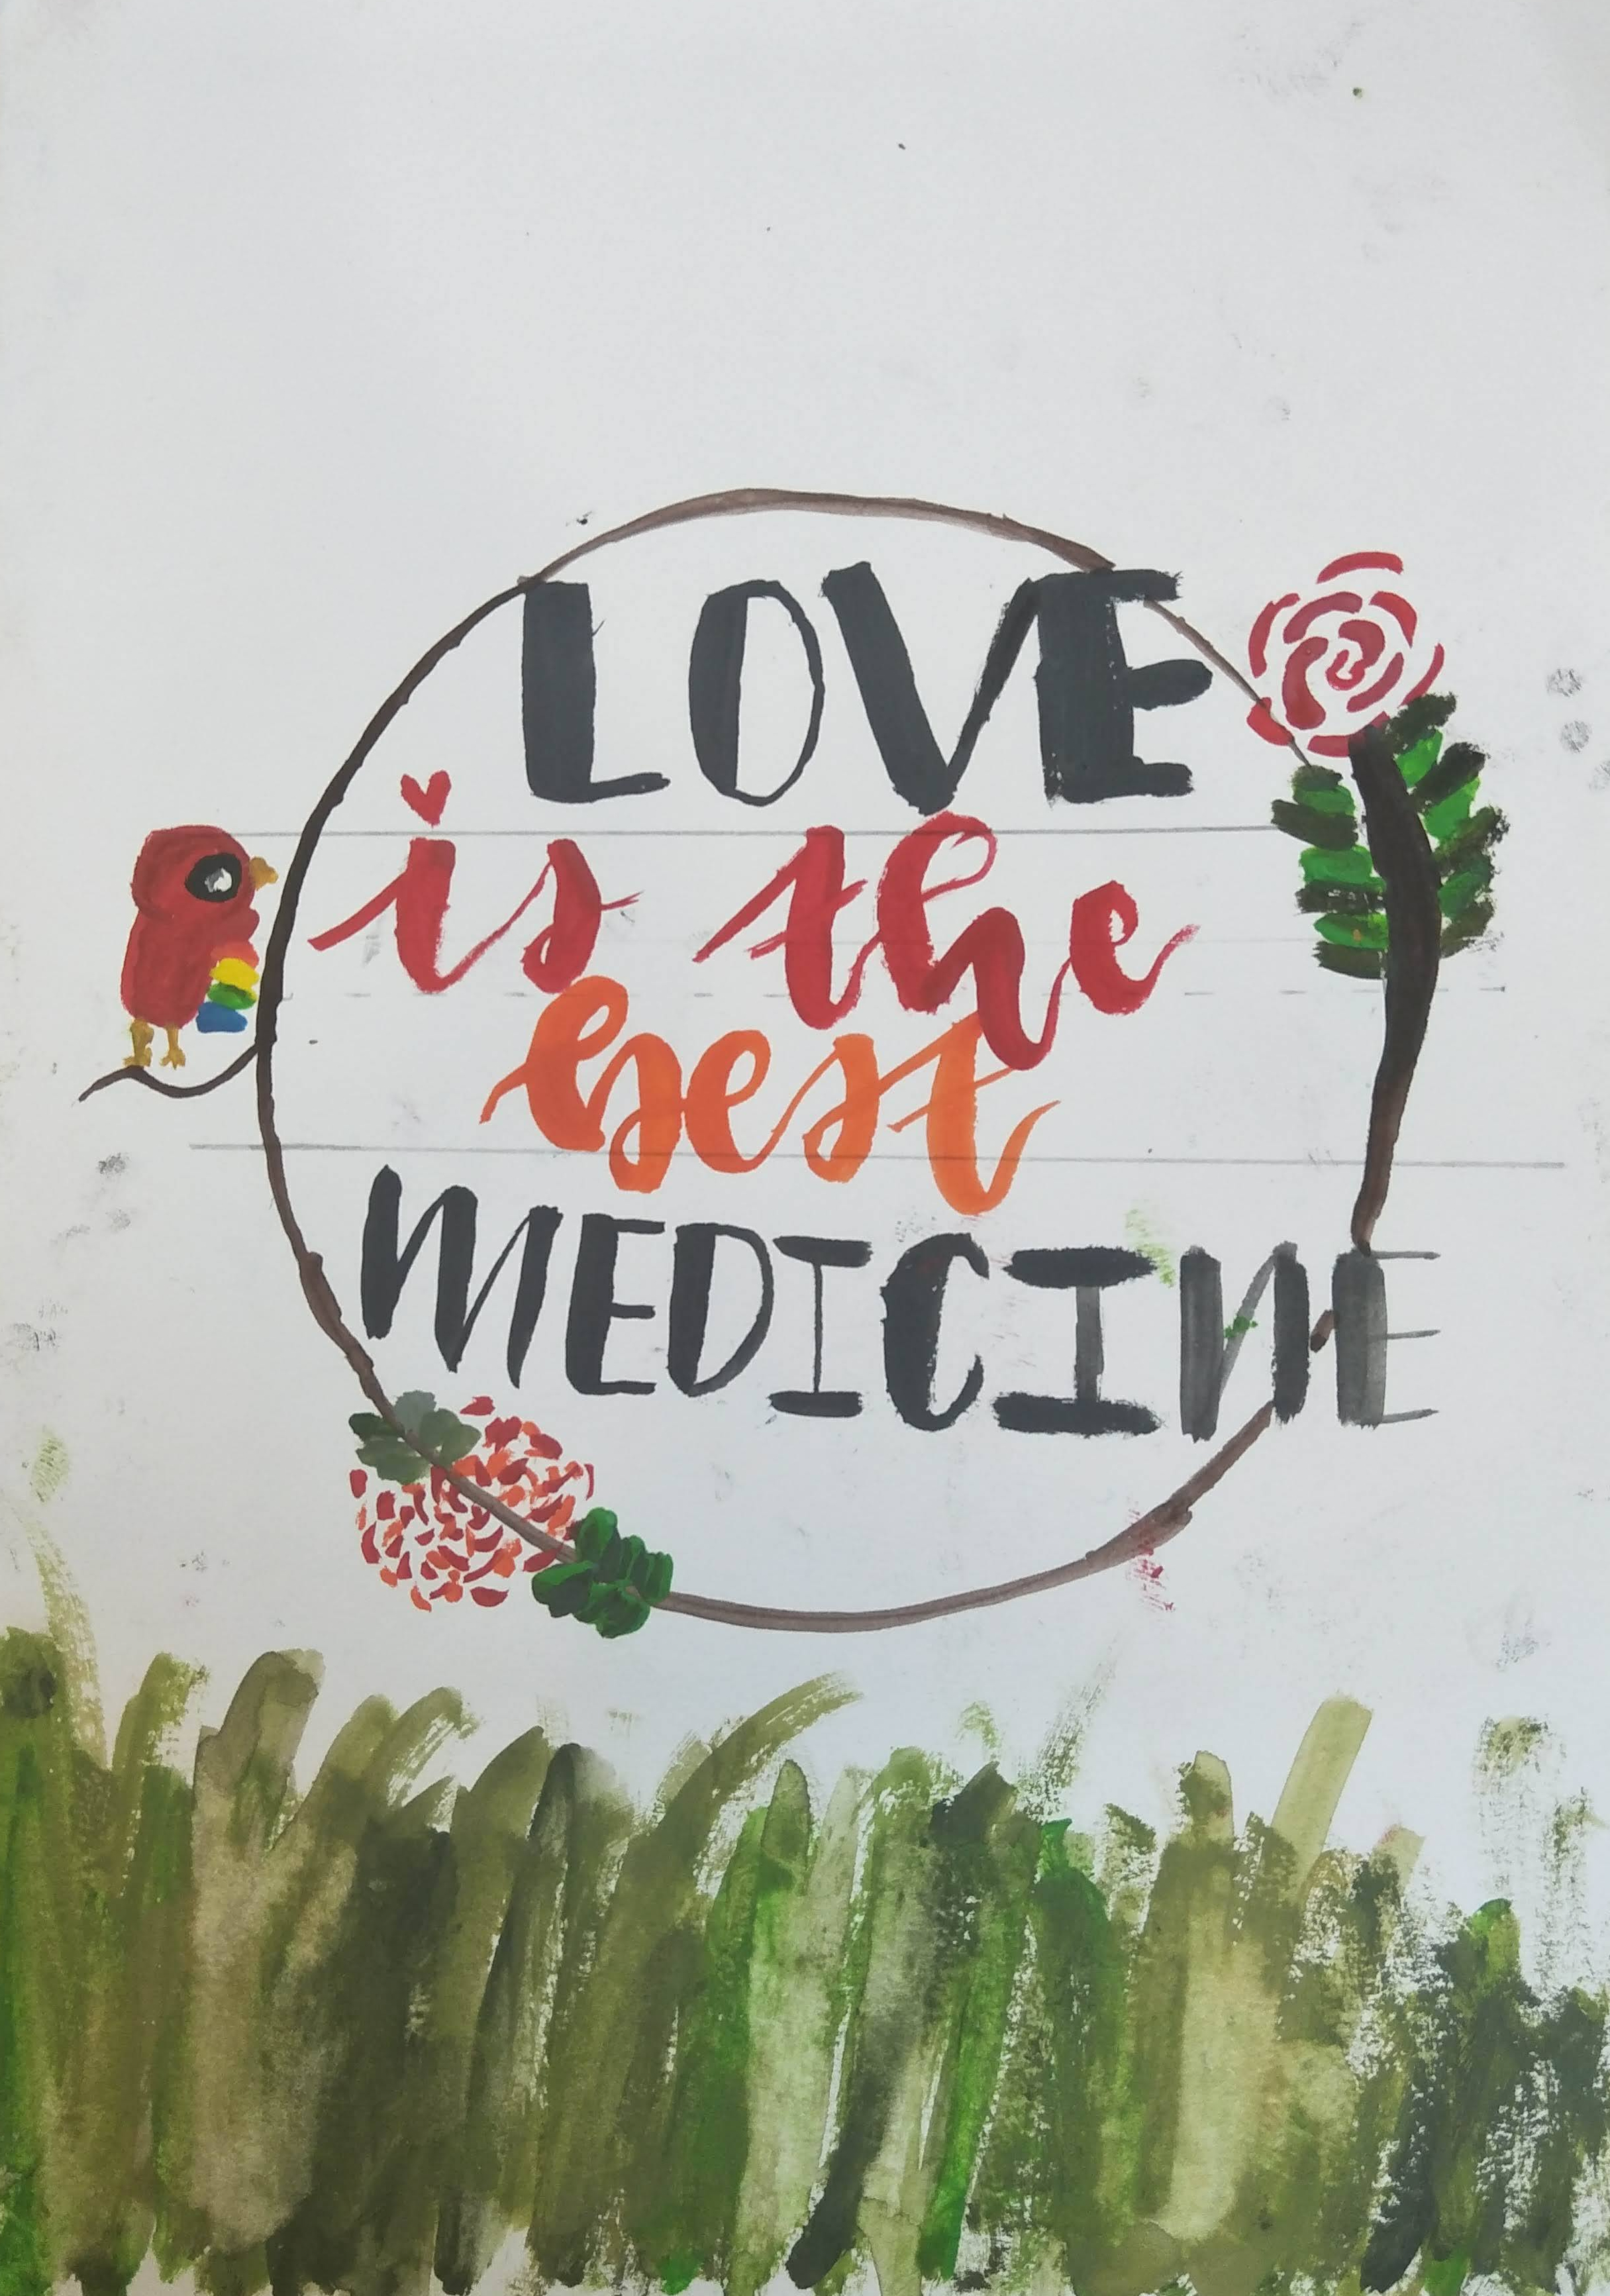 LOVE
is the
best
MEDICINE